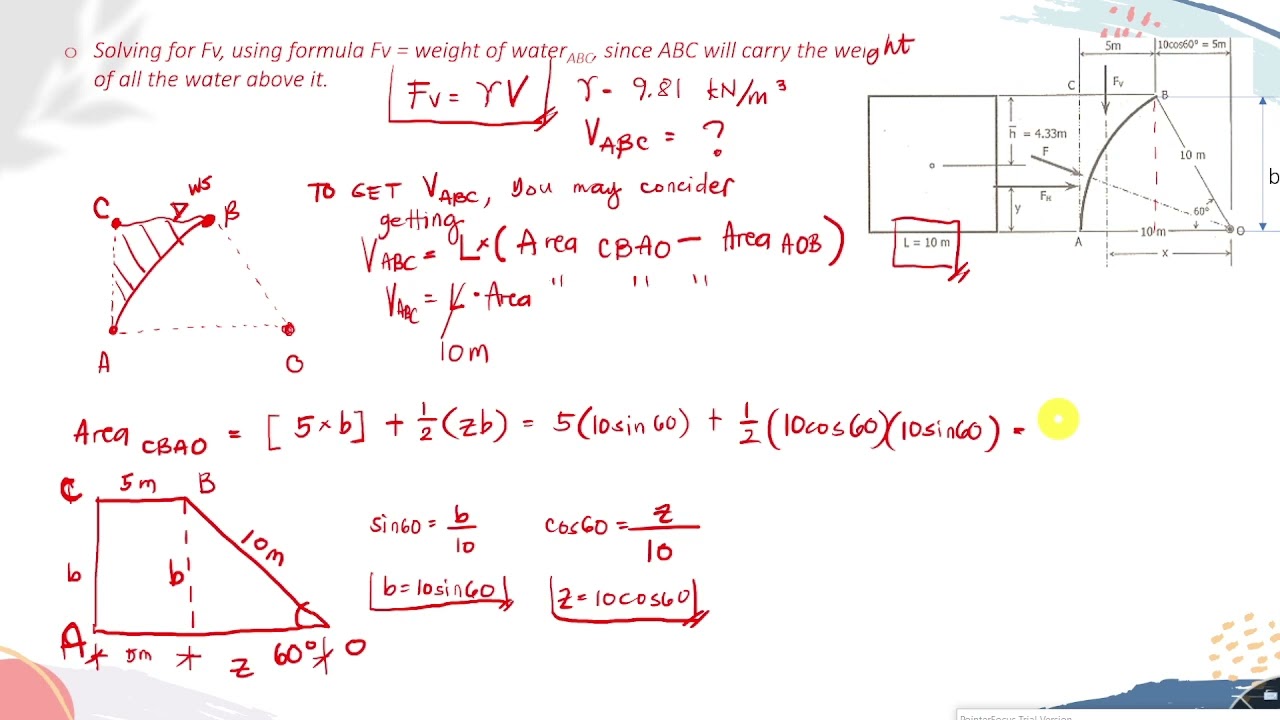 o Solving for Fv, using formula Fv = weight of water ABC, since ABC will carry the weight
of all the water above it.
Fv = γV
γ = 9.81 kN/m³
VABC = ?
TO GET VABC, you may concider
getting
VABC = L×(Area CBAO − Area AOB)
VABC = L · Area " " "
10m
C
WS
B
A
O
5m
10cos60° = 5m
C
Fv
B
h = 4.33m
F
10 m
b
FH
y
60°
L = 10 m
A
10m
O
x
Area CBAO = [5×b] + ½(zb) = 5(10sin60) + ½(10cos60)(10sin60) =
C
5m
B
10m
b
b
A
5m
z
60°
O
sin60 = b/10
cos60 = z/10
b=10sin60
z=10cos60
PointerFocus Trial Version